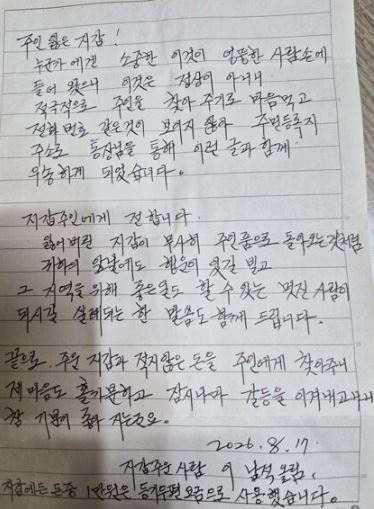 주인 잃은 지갑!
누군가에겐 소중한 이것이 엉뚱한 사람손에
들어 왔으니 이것은 정상이 아니니
적극적으로 주인을 찾아 주기로 마음먹고
전화번호 같은것이 보이지 않아 주민등록지
주소로 통장님을 통해 이런 글과 함께
우송하게 되었습니다.
지갑주인에게 전합니다.
잃어버린 지갑이 무사히 주인품으로 돌아오는것처럼
귀하의 앞날에도 행운이 있길 빌고
그 지역을 위해 좋은일도 할 수 있는 멋진 사람이
되시길 실례되는 한 말씀도 함께 드립니다.
끝으로. 주운 지갑과 적지않은 돈을 주인에게 찾아주니
제 마음도 홀가분하고 잠시나마 갈등을 이겨내고나니
참 기분이 좋아 지는군요.
2026.8.17.
지갑주운 사람 이 남석 올림.
지갑에든 돈중 1만원은 등기우편 요금으로 사용했습니다.